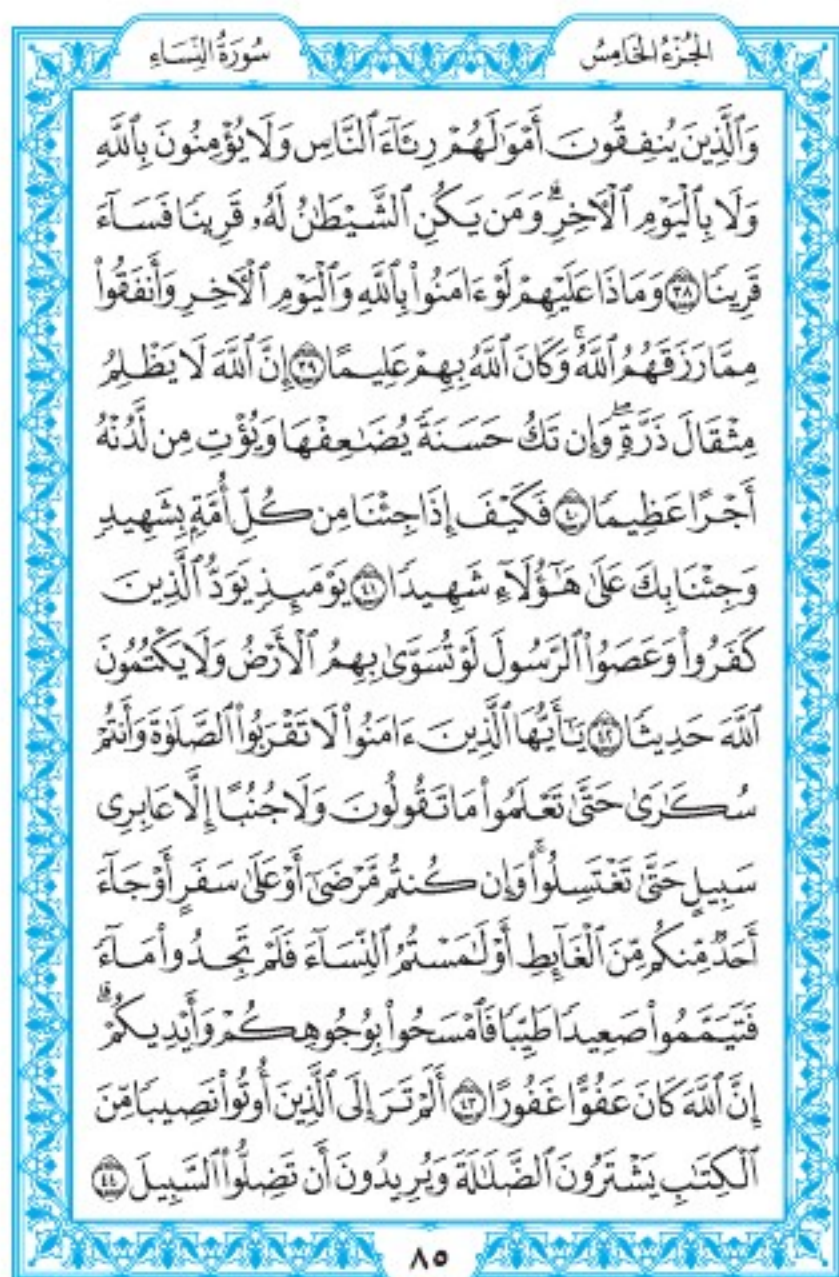 الجُزْءُ الخَامِسُ
سُورَةُ النِّسَاءِ
وَٱلَّذِينَ يُنفِقُونَ أَمۡوَٰلَهُمۡ رِئَآءَ ٱلنَّاسِ وَلَا يُؤۡمِنُونَ بِٱللَّهِ
وَلَا بِٱلۡيَوۡمِ ٱلۡأٓخِرِۗ وَمَن يَكُنِ ٱلشَّيۡطَٰنُ لَهُۥ قَرِينٗا فَسَآءَ
قَرِينٗا ٣٨ وَمَاذَا عَلَيۡهِمۡ لَوۡ ءَامَنُواْ بِٱللَّهِ وَٱلۡيَوۡمِ ٱلۡأٓخِرِ وَأَنفَقُواْ
مِمَّا رَزَقَهُمُ ٱللَّهُۚ وَكَانَ ٱللَّهُ بِهِمۡ عَلِيمًا ٣٩ إِنَّ ٱللَّهَ لَا يَظۡلِمُ
مِثۡقَالَ ذَرَّةٖۖ وَإِن تَكُ حَسَنَةٗ يُضَٰعِفۡهَا وَيُؤۡتِ مِن لَّدُنۡهُ
أَجۡرًا عَظِيمٗا ٤٠ فَكَيۡفَ إِذَا جِئۡنَا مِن كُلِّ أُمَّةِۭ بِشَهِيدٖ
وَجِئۡنَا بِكَ عَلَىٰ هَٰٓؤُلَآءِ شَهِيدٗا ٤١ يَوۡمَئِذٖ يَوَدُّ ٱلَّذِينَ
كَفَرُواْ وَعَصَوُاْ ٱلرَّسُولَ لَوۡ تُسَوَّىٰ بِهِمُ ٱلۡأَرۡضُ وَلَا يَكۡتُمُونَ
ٱللَّهَ حَدِيثٗا ٤٢ يَٰٓأَيُّهَا ٱلَّذِينَ ءَامَنُواْ لَا تَقۡرَبُواْ ٱلصَّلَوٰةَ وَأَنتُمۡ
سُكَٰرَىٰ حَتَّىٰ تَعۡلَمُواْ مَا تَقُولُونَ وَلَا جُنُبًا إِلَّا عَابِرِي
سَبِيلٍ حَتَّىٰ تَغۡتَسِلُواْۚ وَإِن كُنتُم مَّرۡضَىٰٓ أَوۡ عَلَىٰ سَفَرٍ أَوۡ جَآءَ
أَحَدٞ مِّنكُم مِّنَ ٱلۡغَآئِطِ أَوۡ لَٰمَسۡتُمُ ٱلنِّسَآءَ فَلَمۡ تَجِدُواْ مَآءٗ
فَتَيَمَّمُواْ صَعِيدٗا طَيِّبٗا فَٱمۡسَحُواْ بِوُجُوهِكُمۡ وَأَيۡدِيكُمۡۗ
إِنَّ ٱللَّهَ كَانَ عَفُوًّا غَفُورًا ٤٣ أَلَمۡ تَرَ إِلَى ٱلَّذِينَ أُوتُواْ نَصِيبٗا مِّنَ
ٱلۡكِتَٰبِ يَشۡتَرُونَ ٱلضَّلَٰلَةَ وَيُرِيدُونَ أَن تَضِلُّواْ ٱلسَّبِيلَ ٤٤
٨٥